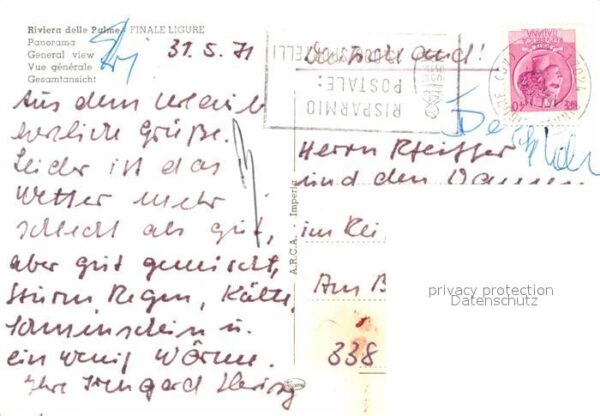 Riviera delle Palme - FINALE LIGURE
Panorama
General view
Vue générale
Gesamtansicht
31.5.71
Aus dem Urlaub
herzliche Grüße.
Leider ist das
Wetter mehr
schlecht als gut,
aber gut gemischt,
Sturm Regen, Kälte,
Sonnenschein u.
ein wenig Wärme.
Ihre Irmgard
A.R.C.A. - Imperia
RISPARMIO
POSTALE:
Deutschland!
Herrn Pfeiffer
und den Damen
im
Am B
338
privacy protection
Datenschutz